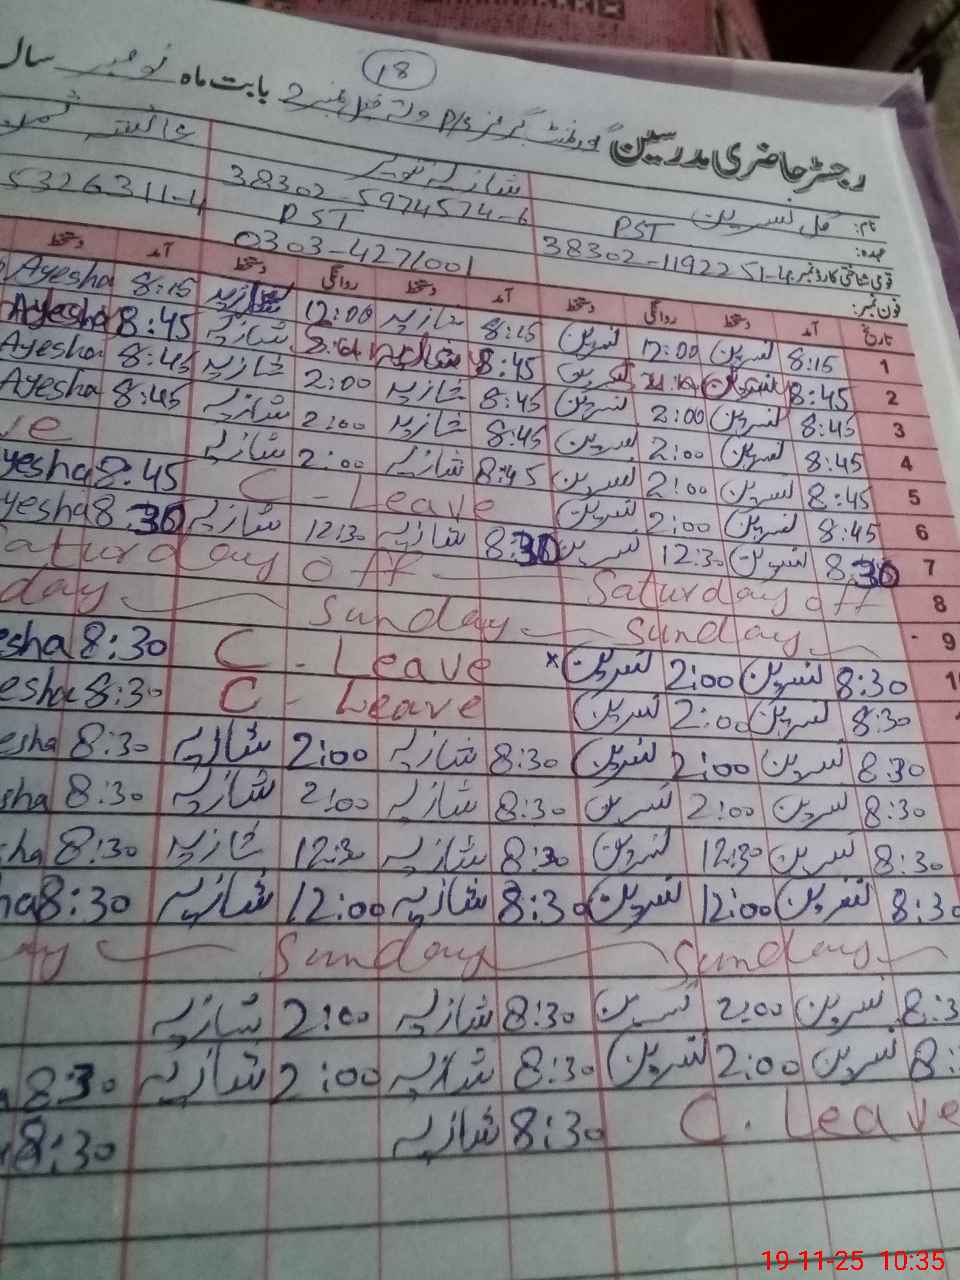 18
رجسٹر حاضری مدرسین گورنمنٹ گرلز P/S بابت ماہ نومبر سال
نام: گل نسرین شازیہ
عہدہ: PST 38302-5974574-6 5326311-4
قومی شناختی کارڈ نمبر 38302-1192251-4 PST
فون نمبر: 0303-4271001
تاریخ آمد دستخط روانگی دستخط آمد دستخط روانگی دستخط آمد دستخط
1 8:15 نسرین 12:00 نسرین 8:15 شازیہ 12:00 شازیہ 8:15 Ayesha
2 8:45 نسرین 8:45 شازیہ شازیہ 8:45 Ayesha
3 8:45 نسرین 2:00 نسرین 8:45 شازیہ 2:00 شازیہ 8:45 Ayesha
4 8:45 نسرین 2:00 نسرین 8:45 شازیہ 2:00 شازیہ 8:45 Ayesha
5 8:45 نسرین 2:00 نسرین 8:45 شازیہ 2:00 شازیہ
6 8:45 نسرین 2:00 نسرین C - Leave 8:45 yesha
7 8:30 نسرین 12:30 نسرین 8:30 شازیہ 12:30 شازیہ 8:30 yesha
8 Saturday off Saturday off
9 Sunday Sunday day
8:30 نسرین 2:00 نسرین × C - Leave 8:30 esha
8:30 نسرین 2:00 نسرین C - Leave 8:30 esha
8:30 نسرین 2:00 نسرین 8:30 شازیہ 2:00 شازیہ 8:30 esha
8:30 نسرین 2:00 نسرین 8:30 شازیہ 2:00 شازیہ 8:30 sha
8:30 نسرین 12:30 نسرین 8:30 شازیہ 12:30 شازیہ 8:30 ha
8:30 نسرین 12:00 نسرین 8:30 شازیہ 12:00 شازیہ 8:30 ha
Sunday Sunday ay
8:3 نسرین 2:00 نسرین 8:30 شازیہ 2:00 شازیہ
8: نسرین 2:00 نسرین 8:30 شازیہ 2:00 شازیہ 8:30
C. Leave 8:30 شازیہ 8:30
19-11-25 10:35